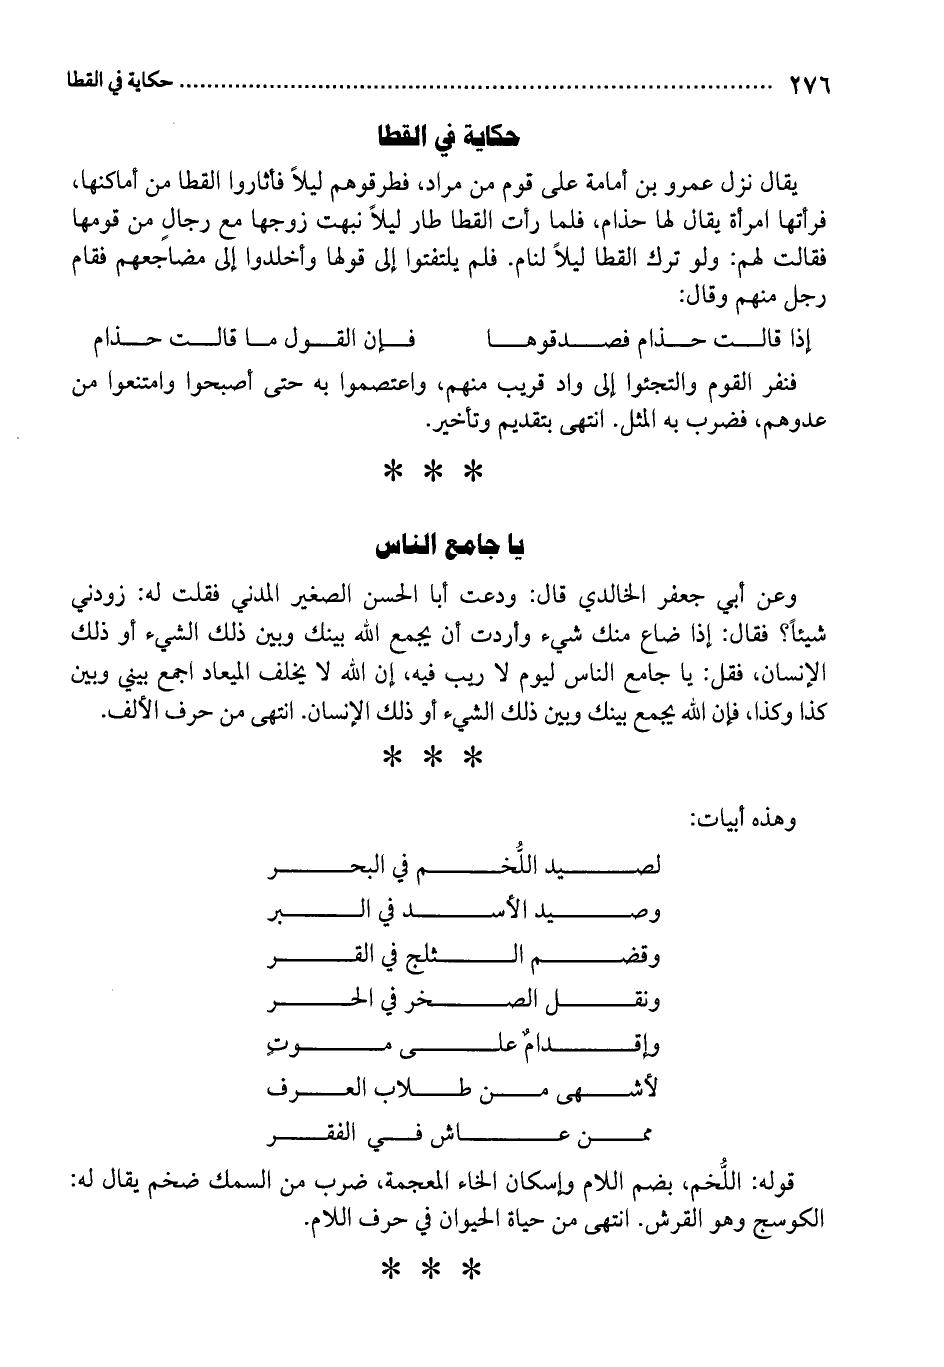 ٢٧٦ ........................................................................ حكاية في القطا
حكاية في القطا
يقال نزل عمرو بن أمامة على قوم من مراد، فطرقوهم ليلاً فأثاروا القطا من أماكنها،
فرأتها امرأة يقال لها حذام، فلما رأت القطا طار ليلاً نبهت زوجها مع رجالٍ من قومها
فقالت لهم: ولو ترك القطا ليلاً لنام. فلم يلتفتوا إلى قولها وأخلدوا إلى مضاجعهم فقام
رجل منهم وقال:
إذا قالت حذام فصدقوها فإن القول ما قالت حذام
فنفر القوم والتجئوا إلى واد قريب منهم، واعتصموا به حتى أصبحوا وامتنعوا من
عدوهم، فضرب به المثل. انتهى بتقديم وتأخير.
* * *
يا جامع الناس
وعن أبي جعفر الخالدي قال: ودعت أبا الحسن الصغير المدني فقلت له: زودني
شيئاً؟ فقال: إذا ضاع منك شيء وأردت أن يجمع الله بينك وبين ذلك الشيء أو ذلك
الإنسان، فقل: يا جامع الناس ليوم لا ريب فيه، إن الله لا يخلف الميعاد اجمع بيني وبين
كذا وكذا، فإن الله يجمع بينك وبين ذلك الشيء أو ذلك الإنسان. انتهى من حرف الألف.
* * *
وهذه أبيات:
لصيد اللُّخم في البحر
وصيد الأسد في البر
وقضم الثلج في القر
ونقل الصخر في الحر
وإقدامٌ على موتٍ
لأشهى من طلاب العرف
ممن عاش في الفقر
قوله: اللُّخم، بضم اللام وإسكان الخاء المعجمة، ضرب من السمك ضخم يقال له:
الكوسج وهو القرش. انتهى من حياة الحيوان في حرف اللام.
* * *